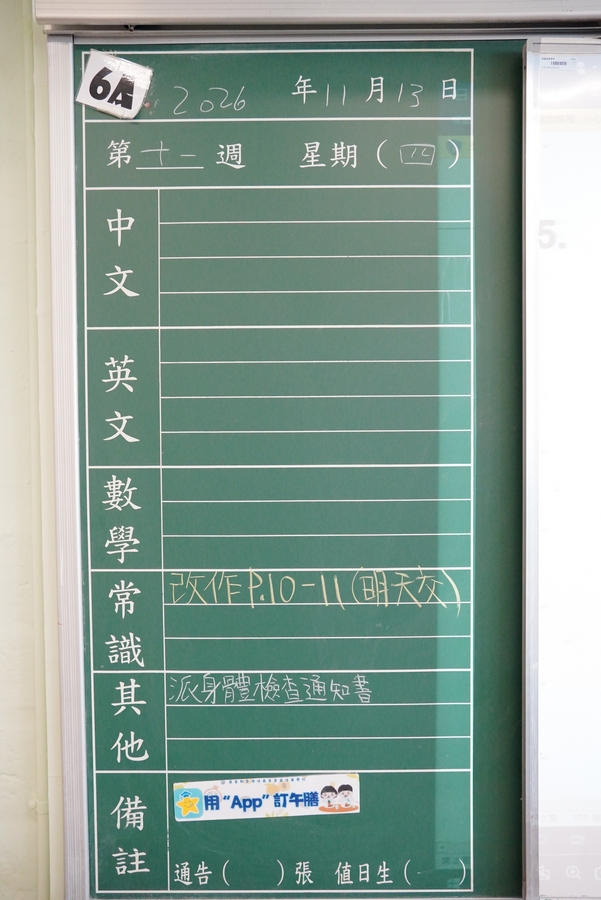 6A
2026 年 11 月 13 日
第 十一 週 星期 ( 四 )
中文
英文
數學
常識 改作 P.10-11 (明天交)
其他 派身體檢查通知書
備註
用 “App” 訂午膳
通告 ( ) 張 值日生 ( )
5.